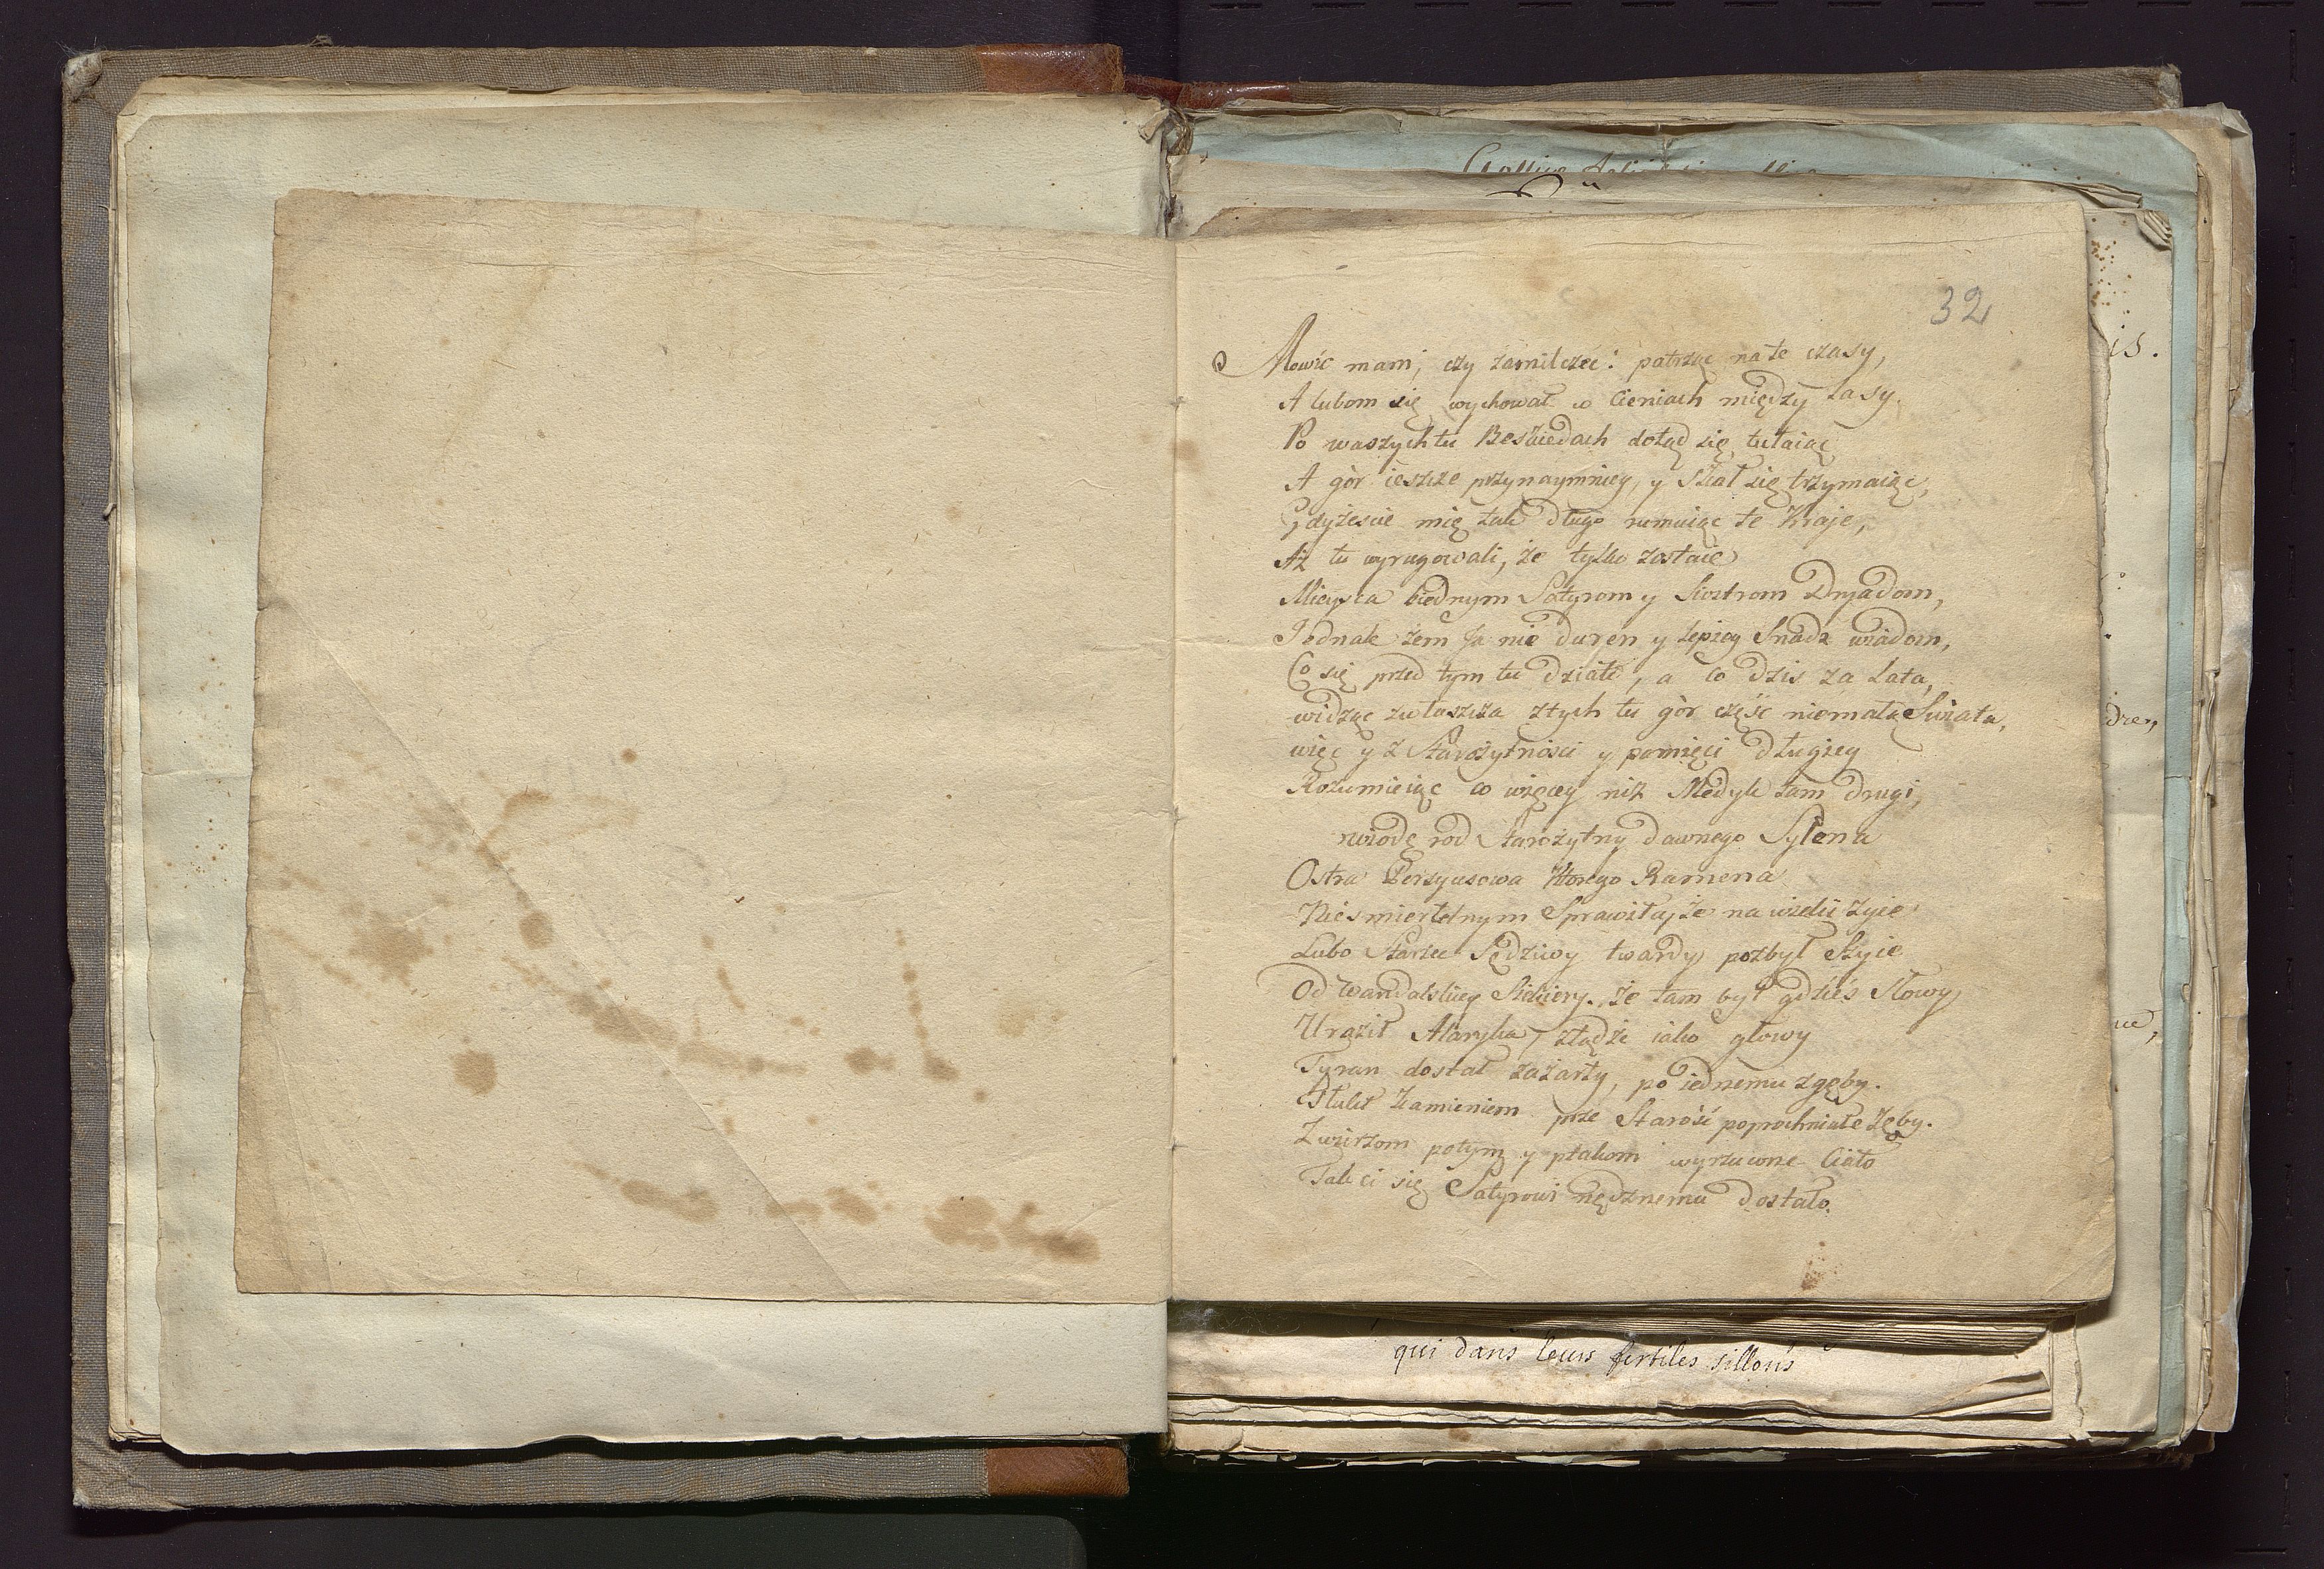 32
Mowić mam, czy zamilczeć: patrząc na te czasy,
A lubom się wychował w Cieniach między Lasy.
Po waszych tu Beskiedach dotąd się tułaiąc
A gòr ieszcze przynaymniey, y Skał się trzymaiąc,
Gdyżescie mię tak długo rumuiąc te Kraje,
Aż tu wyrugowali, że tylko zostaie
Mieysca biednym Satyrom y Siostrom Dryadom,
Jednak żem Ja nie duren y lepiey Snadz wiadom,
Co się przed tym tu działo, a co dzis za Lata,
widząc zwłaszcza ztych tu gòr część niemałą Swiata,
więc y z Starożytności y pamięci długiey
Rozumieiąc co więcey niż Medyk tam drugi,
wiodę rod Starożytny dawnego Sylena
Ostra Perzyusowa Ktorego Kamena
Nieśmiertelnym Sprawiła, że na wieki żyie
Lubo Starzec Sędziwy twardy pozbył Szyie
Od Wandalskiey Siekiery. że tam był gdzieś Słowy
Uraził Alaryka, ztądże iako głowy
Tyran dostał zażarty, po iednemu zgęby.
Tłukł Kamieniem prze Starość poprochniałe Zęby.
Zwierzom potym y ptakom wyrzucone Ciało
Tak ci się Satyrowi nędznemu dostało.
qui dans leurs fertiles sillons
is.